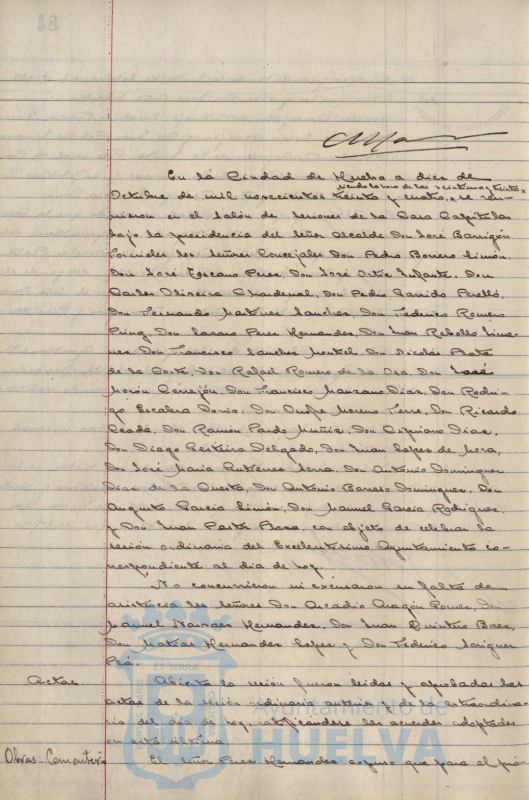 En la Ciudad de Huelva a diez de
siendo la hora de las veintiuna y treinta
Octubre de mil novecientos treinta y cuatro, se reu-
nieron en el salón de sesiones de la Casa Capitular
bajo la presidencia del señor Alcalde Don José Barrigón
Fornieles los señores Concejales Don Pedro Borrero Limón,
Don José Toscano Perez, Don José Ortiz Infante, Don
Carlos Oliveira Chardenal, Don Pedro Garrido Perelló,
Don Fernando Martinez Sanchez, Don Federico Romero
Don Lazaro Perez Hernandez, Don Juan Rebollo Jime-
nez, Don Francisco Sanchez Don Nicolás
de la Corte, Don Rafael Romero de la Osa, Don José
Morón Cerrejón, Don Francisco Manzano Diaz, Don Rodri-
go Escalera Don Onofre Moreno Don Ricardo
Don Ramón Pardo Muñiz, Don Cipriano Diaz,
Don Diego Delgado, Don Juan Lopez de Mora,
Don José Maria Gutierrez Don Antonio Dominguez
Diaz de la Don Antonio Barroso Dominguez, Don
Augusto Garcia Limón, Don Manuel Garcia Rodriguez,
y Don Juan con objeto de celebrar la
sesión ordinaria del Excelentísimo Ayuntamiento co-
rrespondiente al dia de hoy.
No concurrieron ni excusaron su falta de
asistencia los señores Don Arcadio Aragón Gomez, Don
Manuel Narvaez Hernandez, Don Juan Quintero Baez,
Don Matías Hernandez Lopez y Don Federico
Actas. Abierta la sesión fueron leidas y aprobadas las
actas de la sesión ordinaria anterior y de la extraordina-
ria del dia de hoy, ratificándose los acuerdos adoptados
en esta última.
Obras. Cementerio El señor Perez Hernandez expuso que para el pró-
Ayuntamiento de
HUELVA